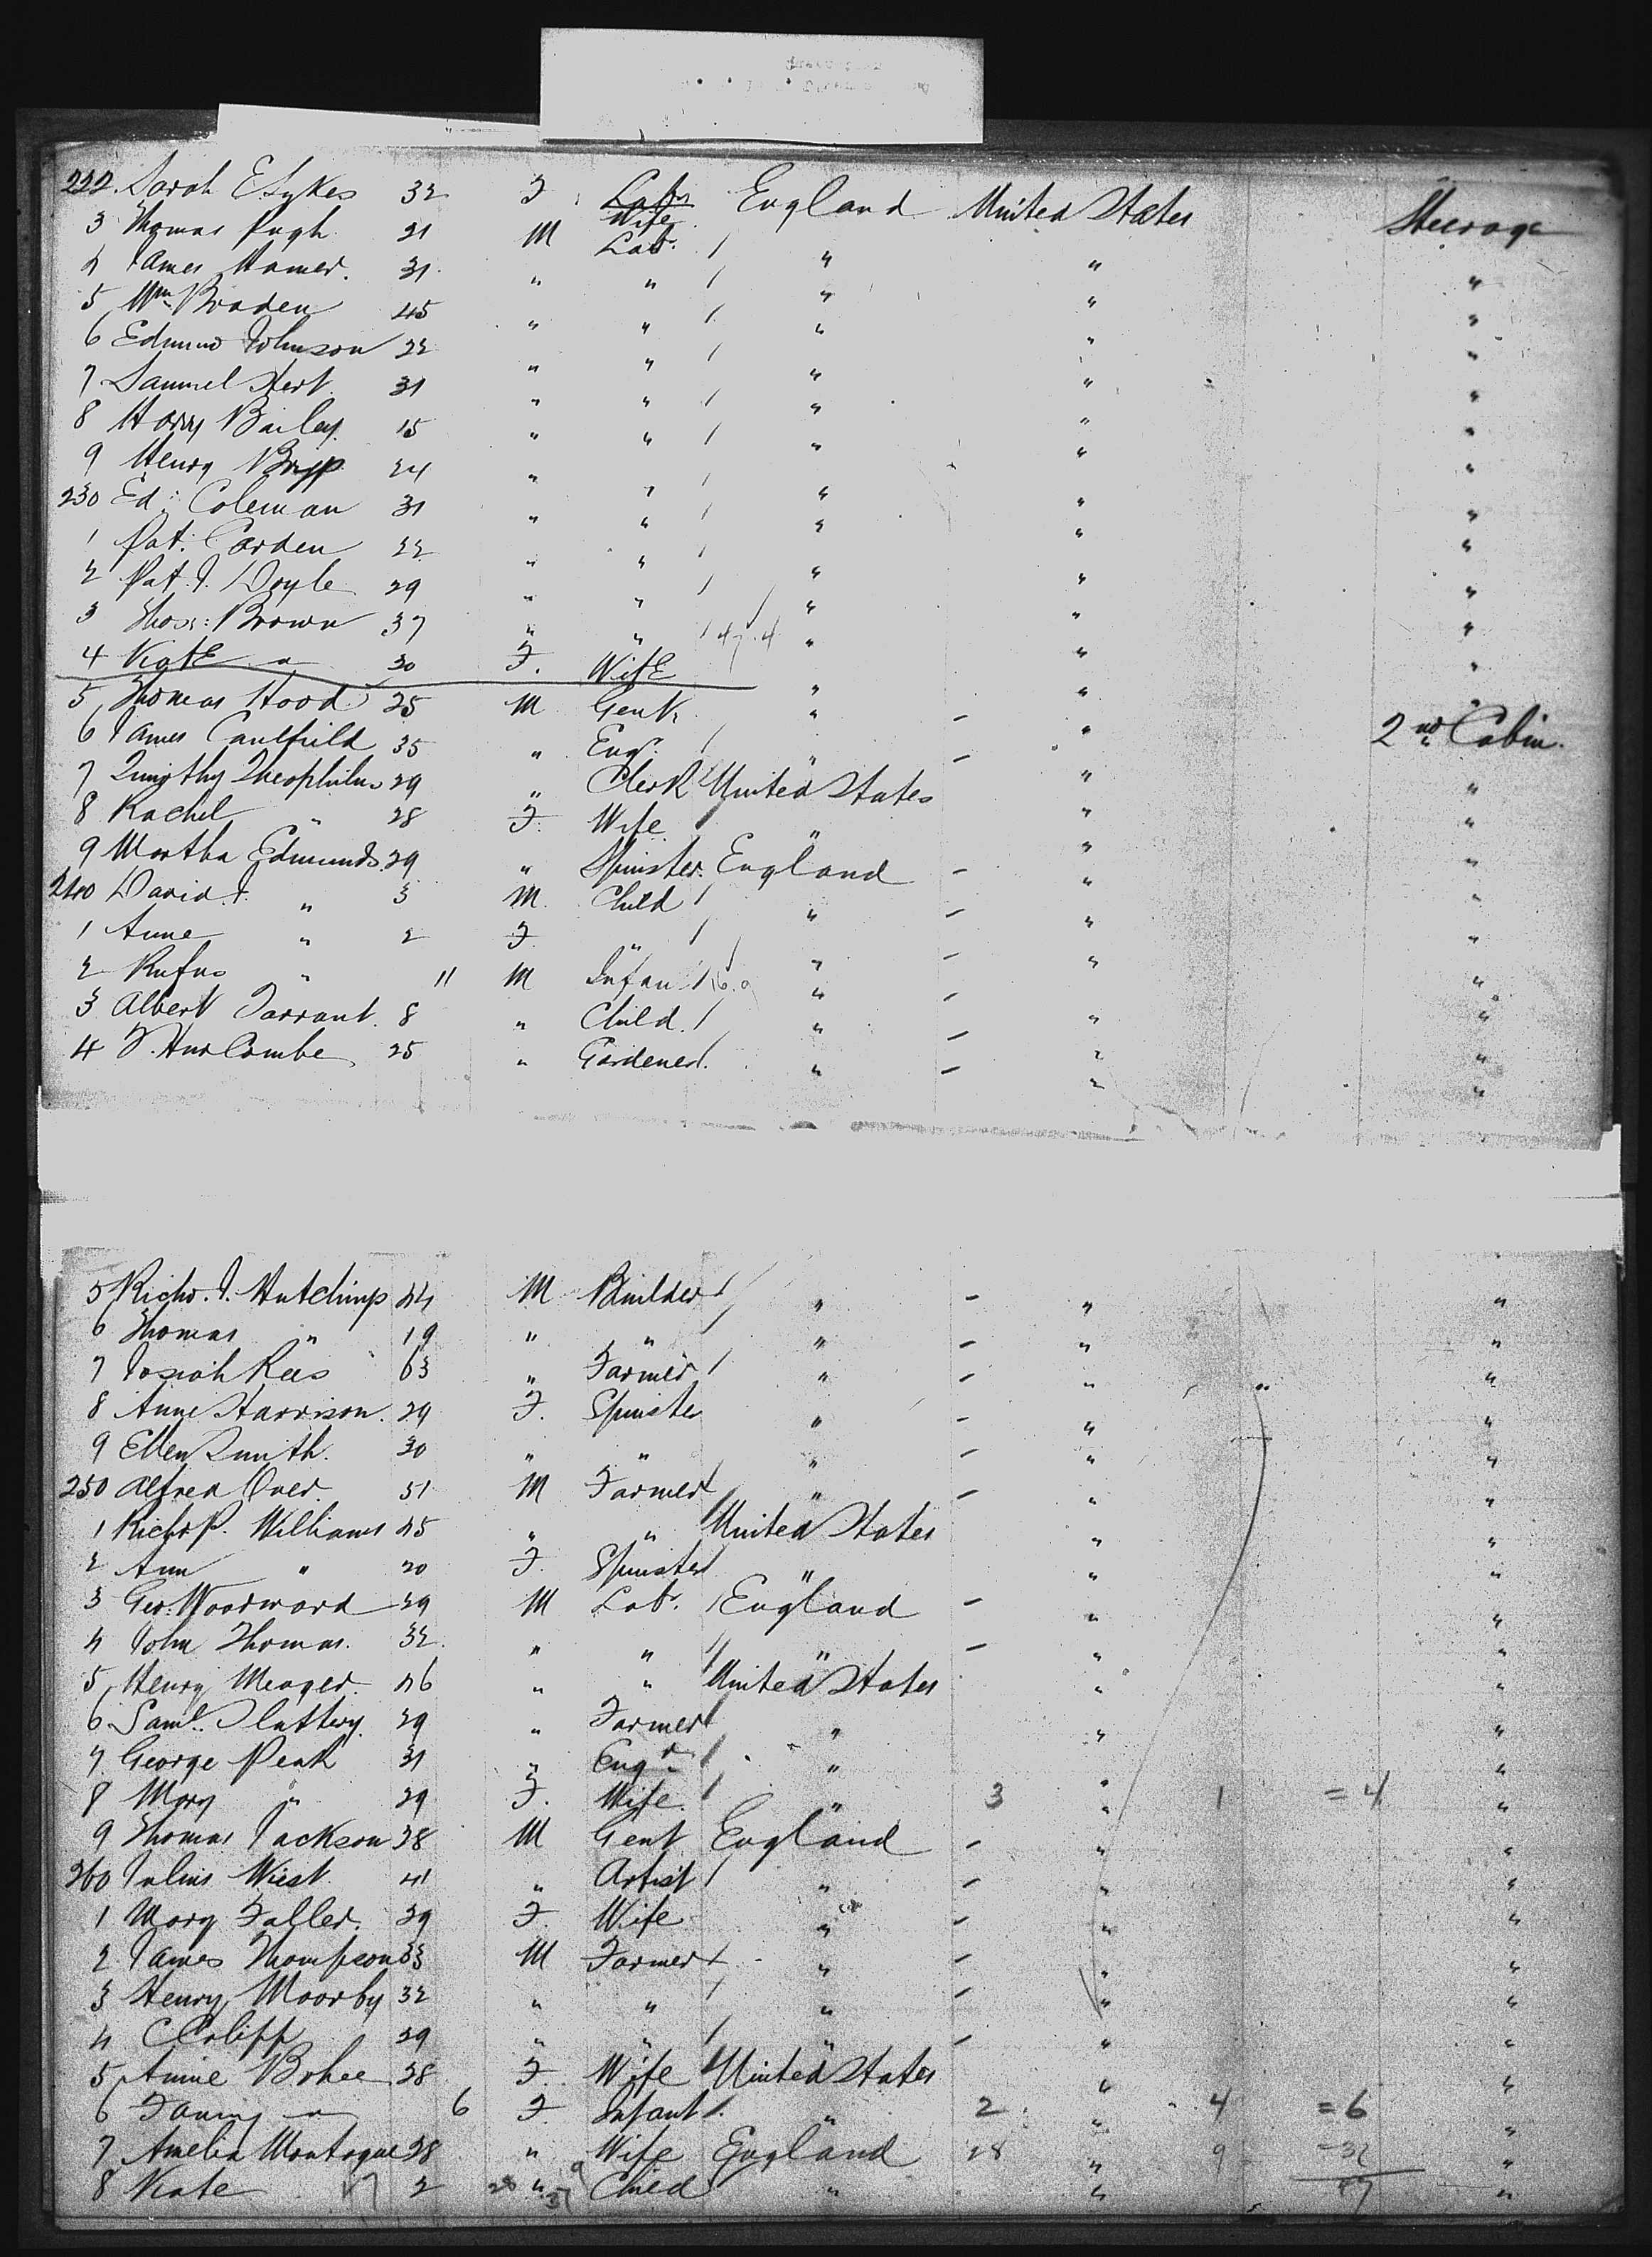 222. Sarah E. Sykes 32 F Labr Wife England United States Steerage
3 Thomas Pugh 21 M Labr. / " " "
4 James Hamer. 31 " " / " " "
5 Wm Braden 45 " " / " " "
6 Edmund Johnson 22 " " / " " "
7 Samuel Hert. 31 " " / " " "
8 Harry Bailey. 15 " " / " " "
9 Henry 24 " " / " " "
230 Ed: Coleman 31 " " / " " "
1 Pat: Carden 22 " " / " " "
2 Pat. J. Doyle 29 " " / " " "
3 Thos: Brown 37 " " / 47.4 " " "
4 Kate " 30 F. Wife " " "
5 Thomas Hood 25 M Gent. " - " 2nd Cabin.
6 James Caulfield 35 " Engr. / " - " "
7 Timothy Theophilus 29 " Clerk United States " "
8 Rachel " 28 F. Wife / " " "
9 Martha Edmunds. 29 " Spinster. England - " "
240 David J. " 3 M. Child / " - " "
1 Anne " 2 F " / " - " "
2 Rufus " 11 M Infan / " - " "
3 Albert Tarrant. 8 " Child. / " - " "
4 25 " Gardener /. " - " "
5 Richd. J. Hutchings 44 M Builder / " - " "
6 Thomas " 19 " " / " - " "
7 Josiah Rees 63 " Farmer / " - " "
8 Anne Harrison. 29 F. Spinster " - " "
9 Ellen Smith. 30 " " " - " "
250 Alfred Over. 51 M Farmer / " - " "
1 Richd P. Williams 45 " " United States " "
2 Ann " 20 F. Spinster " " "
3 Geo: Woodward 29 M Labr. / England - " "
4 John Thomas. 32. " " / " - " "
5 Henry Meager. 46 " " United States " "
6 Saml. Slattery. 29 " Farmer / " " "
7. George Peak 31 " Engr / " " "
8 Mary " 29 F. Wife. / " 3 " 1 = 4 "
9 Thomas Jackson 28 M Gent England - " "
260 Julius Wiest. 41 " Artist / " - " "
1 Mary Faller. 29 F. Wife " - " "
2 James Thompson 33 M Farmer / " - " "
3 Henry Moorby 32 " " / " - " "
4 29 " " / " - " "
5 Annie Bohee 28 F. Wife United States " "
6 Fanny " 6 F. Infant /. " 2 " 4 = 6 "
7 Amelia Montague 28 " Wife England 28 " 9 "
8 Kate 2 " Child " " "